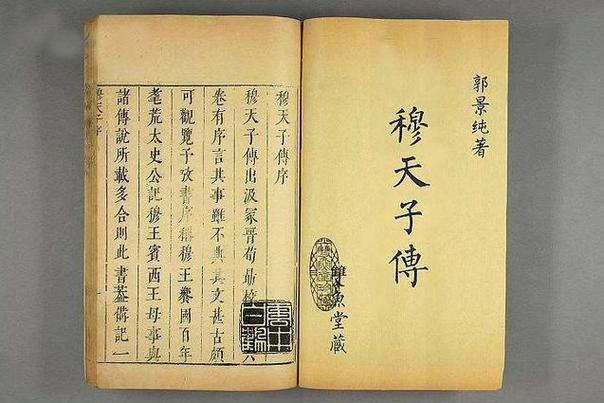 郭景純著
穆天子傳
雙魚堂藏
穆天子傳序
穆天子傳出汲冢晋荀勗校
卷有序言其事雖不典其文甚古頗
可觀覽予攷書序稱穆王饗國百年
耄荒太史公記穆王賓西王母事與
諸傳說所載多合則此書葢備記一
穆天子序